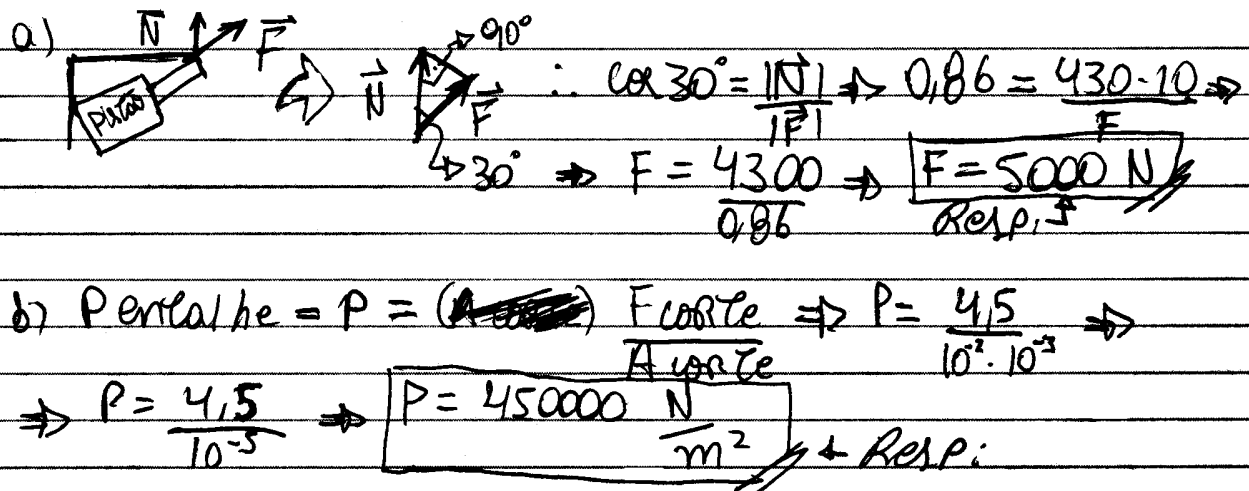 a) N⃗ F⃗ Pistão ⇨ N⃗ F⃗ 90° 30° ∴ cos 30° = |N⃗|/|F⃗| ⇒ 0,86 = 430·10/F ⇒
⇒ F = 4300/0,86 ⇒ F = 5000 N
Resp.
b) P entalhe = P = ( ) F corte/A corte ⇒ P = 4,5/10⁻²·10⁻³ ⇒
⇒ P = 4,5/10⁻⁵ ⇒ P = 450000 N/m² ← Resp.